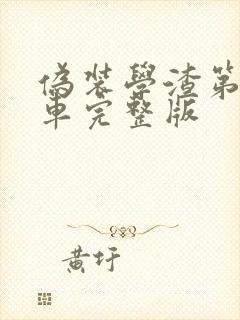 偽裝學渣第
車完整版
黃圩